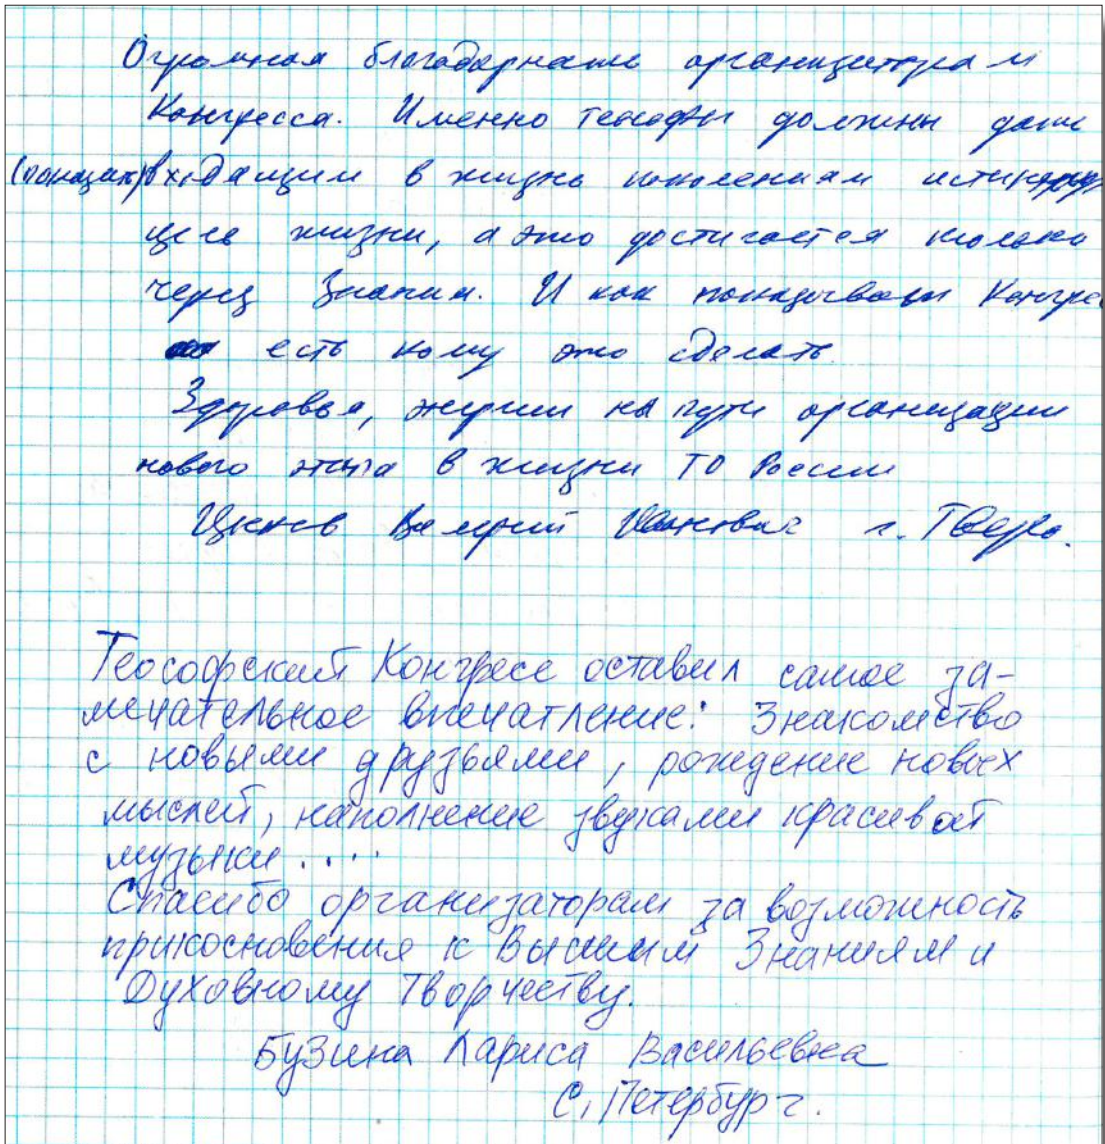 Огромная благодарность организаторам
Конгресса. Именно теософы должны дать
(показать) входящим в жизнь поколениям истинную
цель жизни, а это достигается только
через Знания. И как показывает Конгре
есть кому это сделать.
Здоровья, энергии на пути организации
нового этапа в жизни ТО России
Валерий Иванович г. Тверь.
Теософский Конгресс оставил самое за-
мечательное впечатление: Знакомство
с новыми друзьями, рождение новых
мыслей, наполнение звуками красивой
музыки ....
Спасибо организаторам за возможность
прикосновения к Высшим Знаниям и
Духовному Творчеству.
Бузина Лариса Васильевна
С. Петербург.